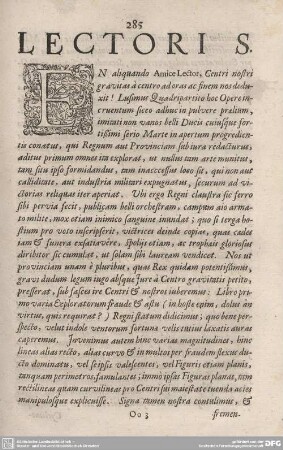 285
LECTORI S.
EN aliquando Amice Lector, Centri nostri
gravitas à centro ad oras ac finem nos dedu-
xit! Lusimus Quadripartito hoc Opere in-
cruentum sicco adhuc in pulvere prælium,
imitati non vanos belli Ducis cuiusque for-
tissimi serio Marte in apertum progredien-
tis conatus, qui Regnum aut Provinciam sub iura redacturus,
aditus primum omnes explorat, ut nullus tam arte munitus,
tam situ ipso formidandus, tam inaccessus loco sit, qui non aut
calliditate, aut industriâ militari expugnatus, securum ad vi-
ctorias reliquas iter aperiat. Ubi ergo Regni claustra sic ferro
sibi pervia fecit, publicam belli orchestram, campum ait arma-
to milite, mox etiam inimico sanguine inundat; quo si terga ho-
stium pro voto inscripserit, victrices deinde copias, quas cædes
iam & funera exsatiavêre, spolijs etiam, ac trophæis gloriosus
diribitor sic cumulat, ut solam sibi lauream vendicet. Nos ut
provinciam unam è pluribus, quas Rex quidam potentissimus,
gravi dudum legum iugo absque Jure à Centro gravitatis petito,
presserat, sub fasces ire Centri & nostros iuberemus: Libro pri-
mo varia Exploratorum fraude & astu (in hoste enim, dolus an
virtus, quis requirat?) Regni statum didicimus; quo bene per-
specto, velut indole ventorum fortuna velis tutius laxatis auras
caperemus. Invenimus autem hinc varias magnitudines, hinc
lineas alias recto, alias curvo & in multos per fraudem flexus du-
cto dominatu, vel seipsis valescentes, vel Figuris etiam planis,
tanquam perimetros, famulantes; immò ipsas Figuras planas, non
rectilineas quam curvilineas pro Centri sui maiestate tuenda acies
manipulosque explicuisse. Signa tamen nostra contulimus, &
Oo 3
fremen-